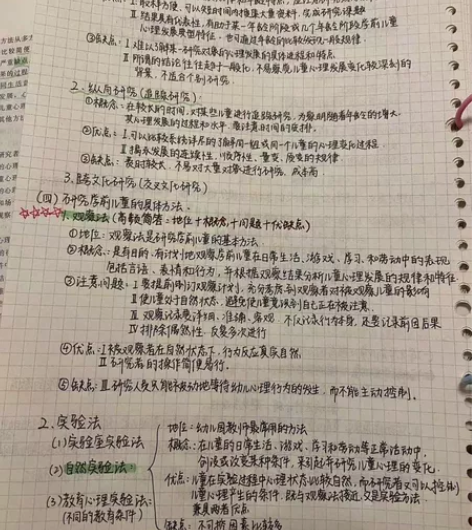 1. 取样方便,可以短时间内搜集大量资料,完成研究课题
Ⅱ 结果具有代表性,有助于某一年龄阶段或几个年龄阶段学前儿童
心理发展典型特征
③缺点:Ⅰ.难以了解某一研究对象的心理发展的具体过程和特点
Ⅱ 所得的结论往往过于一般化,不易察觉儿童心理发展变化较深刻的
背景,不适合个别研究
2. 纵向研究(追踪研究)
①概念:在较长的时间,对某些儿童进行追踪研究,为察明随着年龄的增大,
其心理发展的过程和水平,看注意时间的安排。
②优点:Ⅰ.可以比较系统详尽的了解同一组或同一个儿童的心理变化过程
Ⅱ 揭示发展的连续性,顺序性,量变、质变的规律
③缺点:费时较大,不易对大量对象进行研究,成本高
3. 跨文化研究(交叉文化研究)
(四)研究学前儿童的具体方法
1. 观察法(高频简答:地位+概念+问题+优缺点)
①地位:观察法是研究学前儿童的基本方法
②概念:是有目的、有计划地观察学前儿童在日常生活、游戏、学习和劳动中的表现
包括言语、表情和行为,并根据观察结果分析儿童心理发展的规律和特征
③注意问题:Ⅰ要提前制订观察计划,充分考虑到观察者对被观察儿童的影响
Ⅱ 使儿童处于自然状态,避免使儿童意识到自己正在被注意
Ⅲ 观察记录要详细、准确、客观,不仅记录行为本身,还要记录前因后果
Ⅳ 排除偶然性,反复多次进行
④优点:Ⅰ被观察者在自然状态下,行为反应真实自然
Ⅱ 研究者的操作简便易行。
⑤缺点:Ⅱ.研究人员只能被动地等待幼儿心理行为的发生,而不能主动控制。
2. 实验法
(1)实验室实验法
(2)自然实验法
(3)教育心理实验法:
(不同的教育条件)
地位:幼儿园教师最常用的方法
概念:在儿童的日常生活、游戏、学习和劳动等正常活动中,
创设或改变某种条件,来引起并研究儿童心理的变化
优点:儿童在实验过程中心理状态比较自然,而研究者又可以控制
儿童心理产生的条件,既与观察法接近,又是实验方法
兼具两者优点
缺点: